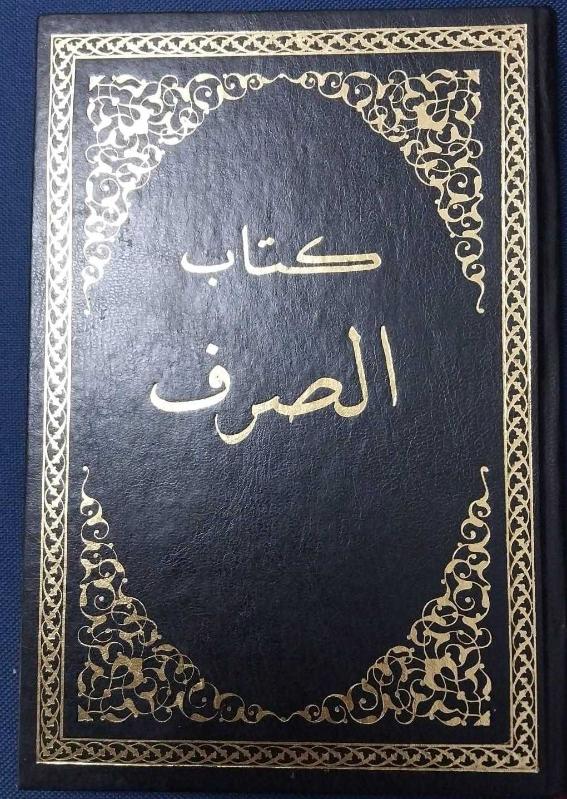 كتاب
الصرف